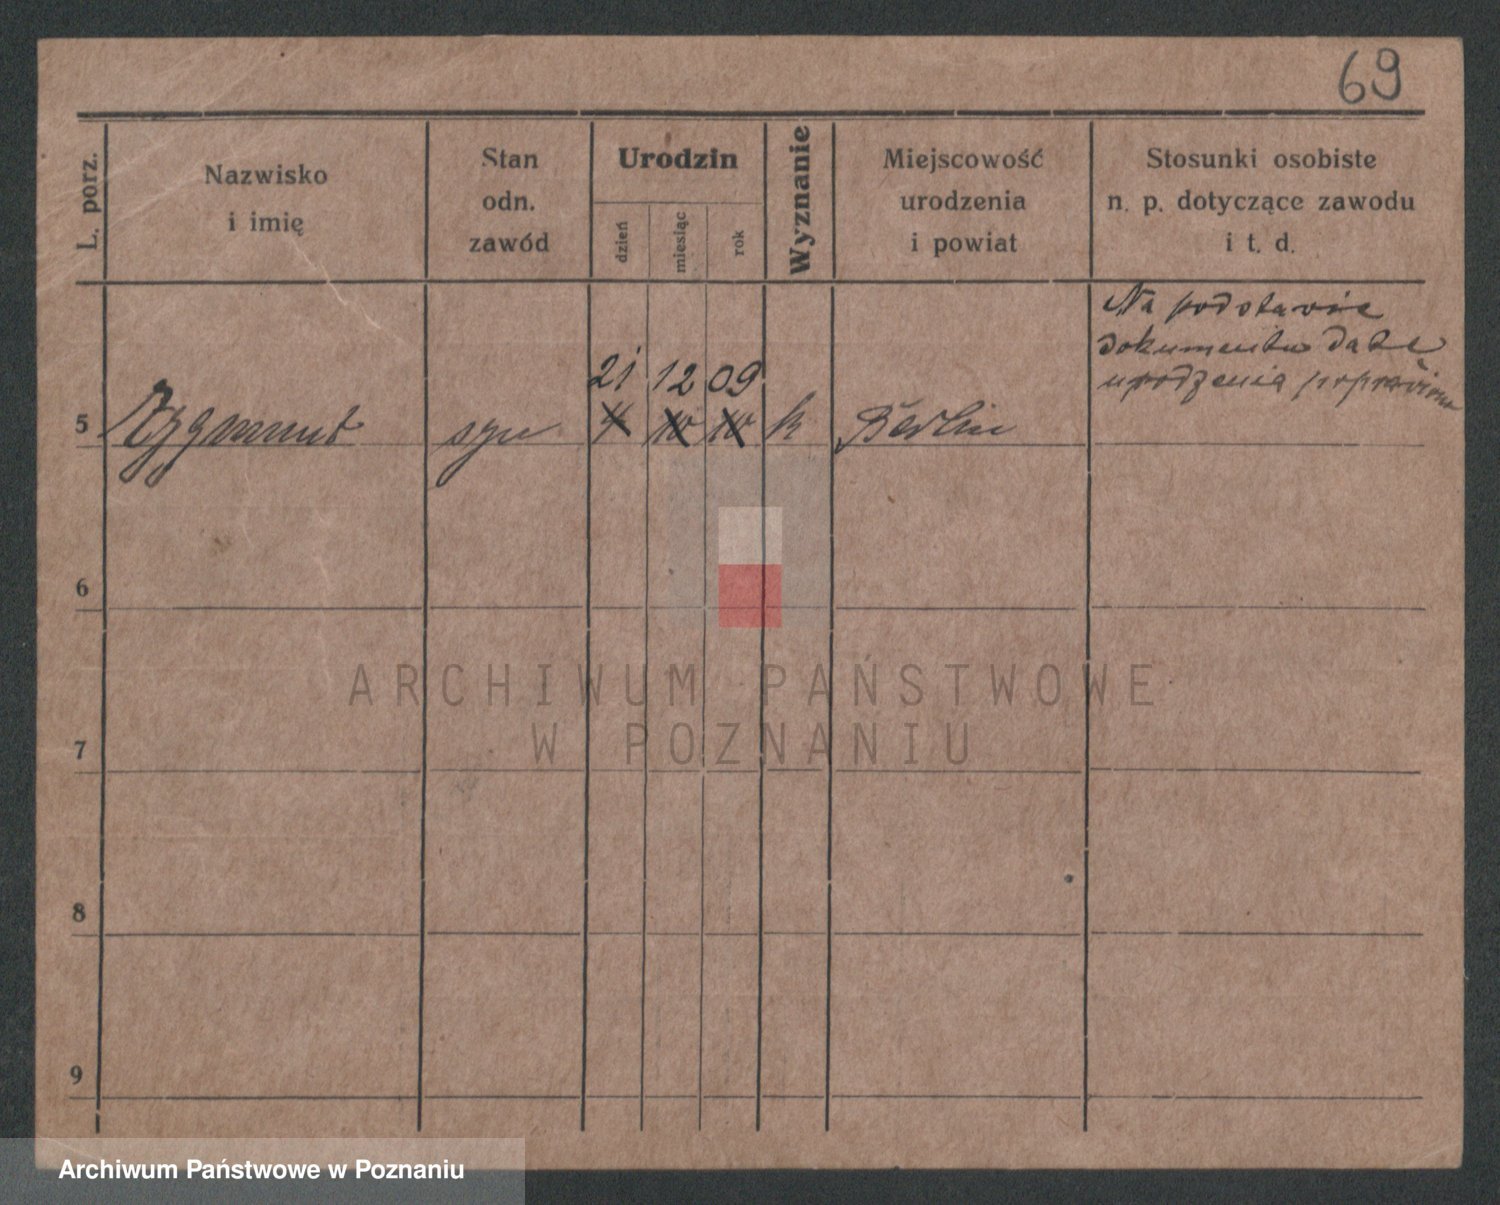 69
L. porz.
Nazwisko
i imię
Stan
odn.
zawód
Urodzin
dzień
miesiąc
rok
Wyznanie
Miejscowość
urodzenia
i powiat
Stosunki osobiste
n. p. dotyczące zawodu
i t. d.
Na podstawie
dokumentu datę
urodzenia poprawiono
21 12 09
5 Zygmunt syn k Berlin
6
ARCHIWUM PAŃSTWOWE
W POZNANIU
7
8
9
Archiwum Państwowe w Poznaniu